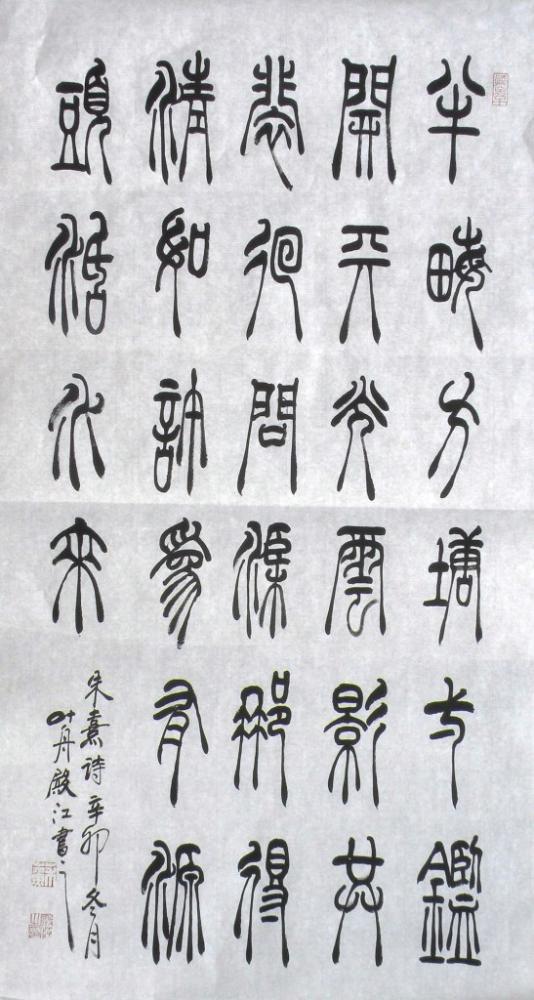 半畮方塘一鑑
開天光雲影共
裴徊問渠那得
清如許爲有源
頭活水來
朱熹诗辛卯冬月
叶殿江書之